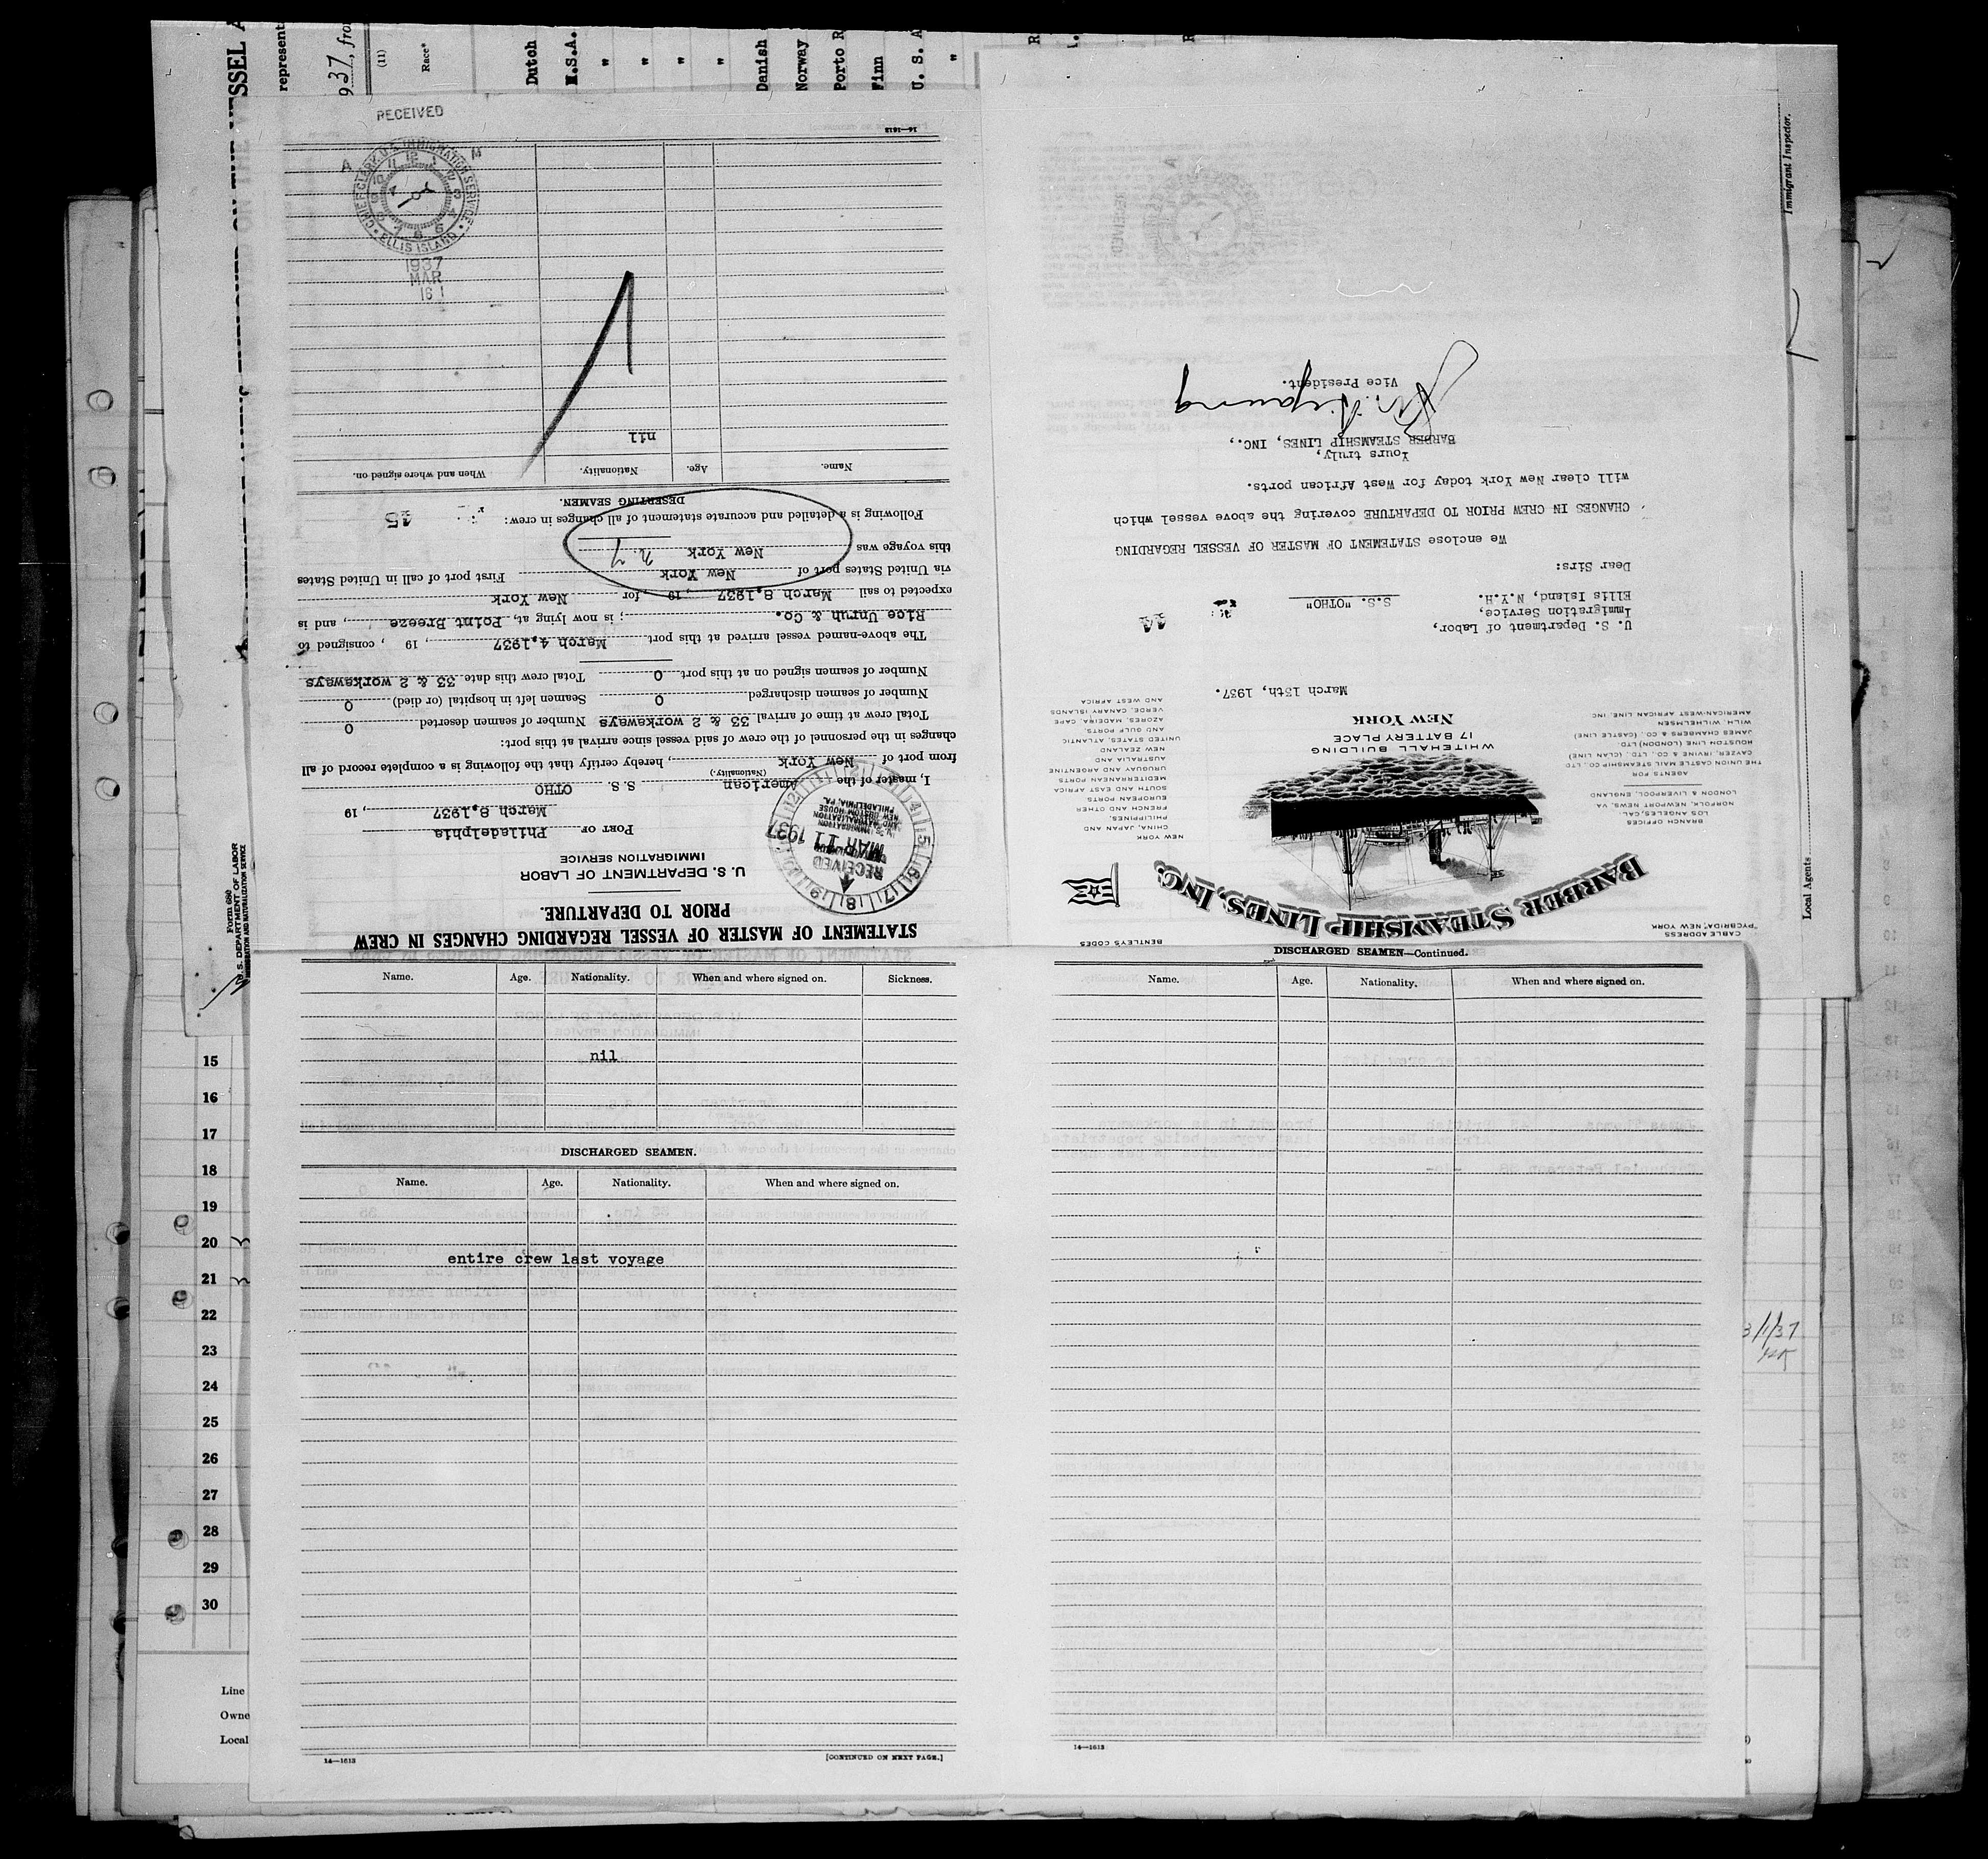 STATEMENT OF MASTER OF VESSEL REGARDING CHANGES IN CREW
PRIOR TO DEPARTURE.
U. S. DEPARTMENT OF LABOR
IMMIGRATION SERVICE
PORT OF Philadelphia
March 8,1937, 19
RECEIVED
MAR 11 1937
U.S. IMMIGRATION
AND NATURALIZATION
NEW CUSTOM HOUSE
PHILADELPHIA, PA.
I, master of the American S. S. OTHO
(Nationality.)
from port of New York, hereby certify that the following is a complete record of all
changes in the personnel of the crew of said vessel since arrival at this port:
Total crew at time of arrival 33 & 2 workaways Number of seamen deserted 0
Number of seamen discharged 0 Seamen left in hospital (or died) 0
Number of seamen signed on at this port 0 Total crew this date 33 & 2 workaways
The above-named vessel arrived at this port March 4,1937, 19 , consigned to
Rice Unruh & Co. ; is now lying at, Point Breeze, and is
expected to sail March 8,1937, 19 , for New York
via United States port of New York First port of call in United States
this voyage was New York n.y
Following is a detailed and accurate statement of all changes in crew: 15
DESERTING SEAMEN.
Name. Age. Nationality. When and where signed on.
nil
14—1613
RECEIVED
CHIEF CLERK U.S. IMMIGRATION SERVICE
ELLIS ISLAND
A M
1937
MAR
16 1
CABLE ADDRESS
"PYCBRIDA", NEW YORK
BENTLEYS CODES
BARBER STEAMSHIP LINES, INC.
BRANCH OFFICES
LOS ANGELES, CAL.
NORFOLK, NEWPORT NEWS, VA
LONDON & LIVERPOOL, ENGLAND
AGENTS FOR
THE UNION CASTLE MAIL STEAMSHIP CO., LTD
CAYZER, IRVINE & CO., LTD. (CLAN LINE)
HOUSTON LINE (LONDON) LTD.
JAMES CHAMBERS & CO., (CASTLE LINE)
WILH. WILHELMSEN
AMERICAN-WEST AFRICAN LINE, INC
NEW YORK
CHINA, JAPAN AND
PHILIPPINES,
FRENCH AND OTHER
EUROPEAN PORTS
SOUTH AND EAST AFRICA
MEDITERRANEAN PORTS
URUGUAY AND ARGENTINE
AUSTRALIA AND
NEW ZEALAND
UNITED STATES, ATLANTIC
AND GULF PORTS,
AZORES, MADEIRA, CAPE
VERDE, CANARY ISLANDS
AND WEST AFRICA
WHITEHALL BUILDING
17 BATTERY PLACE
NEW YORK
March 13th, 1937.
U. S. Department of Labor,
Immigration Service,
Ellis Island, N.Y.H.
S.S. "OTHO"
14
Dear Sirs:
We enclose STATEMENT OF MASTER OF VESSEL REGARDING
CHANGES IN CREW PRIOR TO DEPARTURE covering the above vessel which
will clear New York today for West African ports.
Yours truly,
BARBER STEAMSHIP LINES, INC.,
Vice President.
Name. Age. Nationality. When and where signed on. Sickness.
nil
DISCHARGED SEAMEN.
Name. Age. Nationality. When and where signed on.
entire crew last voyage
14—1613
[CONTINUED ON NEXT PAGE.]
DISCHARGED SEAMEN—Continued.
Name. Age. Nationality. When and where signed on.
14—1613
represent
937, fro
(11)
Race*
Dutch
"
"
"
"
Danish
Norway
Porto R
Finn
U. S. A
"
Form 680
U. S. DEPARTMENT OF LABOR
IMMIGRATION AND NATURALIZATION SERVICE
Immigrant Inspector.
Local Agents
15
16
17
18
19
20
21
22
23
24
25
26
27
28
29
30
Line
Owne
Local
3/1/37